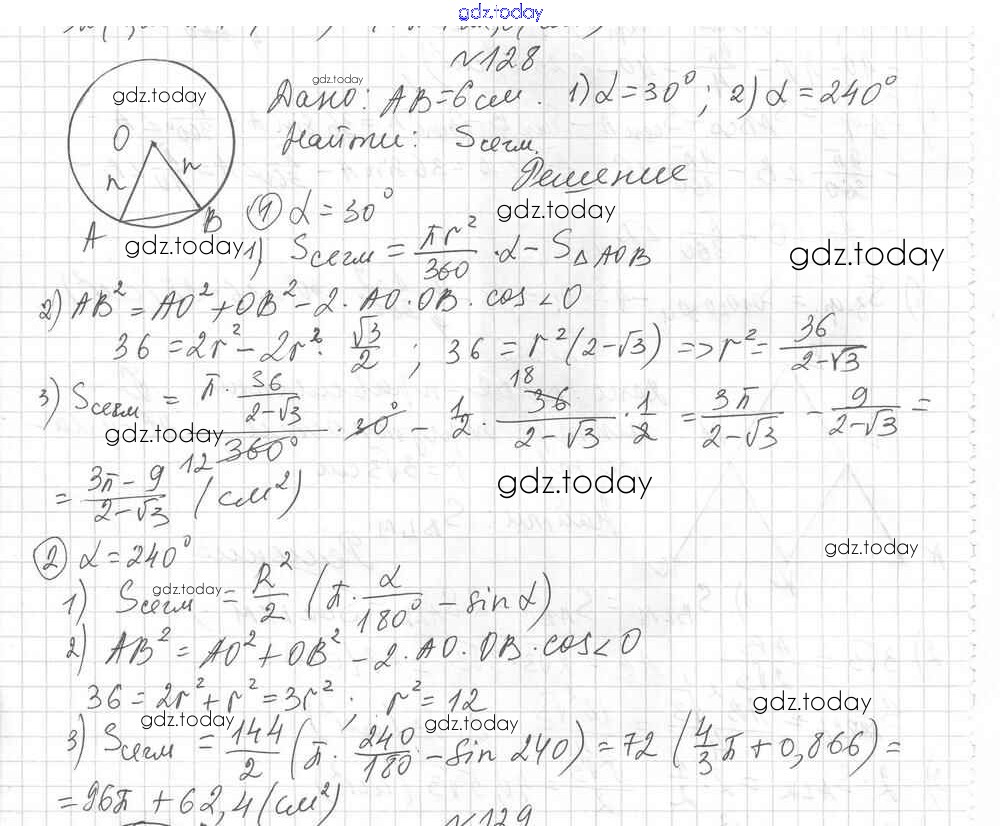 gdz.today
№128
gdz.today
gdz.today
Дано: AB = 6 см. 1) α = 30°; 2) α = 240°
Найти: Sсегм.
O
r r
A B
Решение
① α = 30°
gdz.today
gdz.today
1) Sсегм = πr²/360 · α − S△AOB
gdz.today
2) AB² = AO² + OB² − 2 · AO · OB · cos∠O
36 = 2r² − 2r² · √3/2 ; 36 = r²(2−√3) => r² = 36/(2−√3)
3) Sсегм = (π · 36/(2−√3))/360° · 30° − 1/2 · 36/(2−√3) · 1/2 = 3π/(2−√3) − 9/(2−√3) =
12 18
gdz.today
= (3π − 9)/(2−√3) (см²)
gdz.today
② α = 240°
gdz.today
gdz.today
1) Sсегм = R²/2 (π · α/180° − sin α)
2) AB² = AO² + OB² − 2 · AO · OB · cos∠O
36 = 2r² + r² = 3r² ; r² = 12
gdz.today
gdz.today
gdz.today
3) Sсегм = 144/2 (π · 240/180 − sin 240) = 72 (4/3 π + 0,866) =
= 96π + 62,4 (см²)
№129